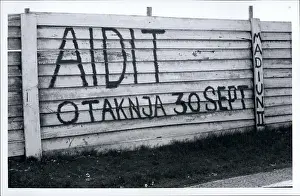 AIDIT
OTAKNJA 30 SEPT
MADIUN II